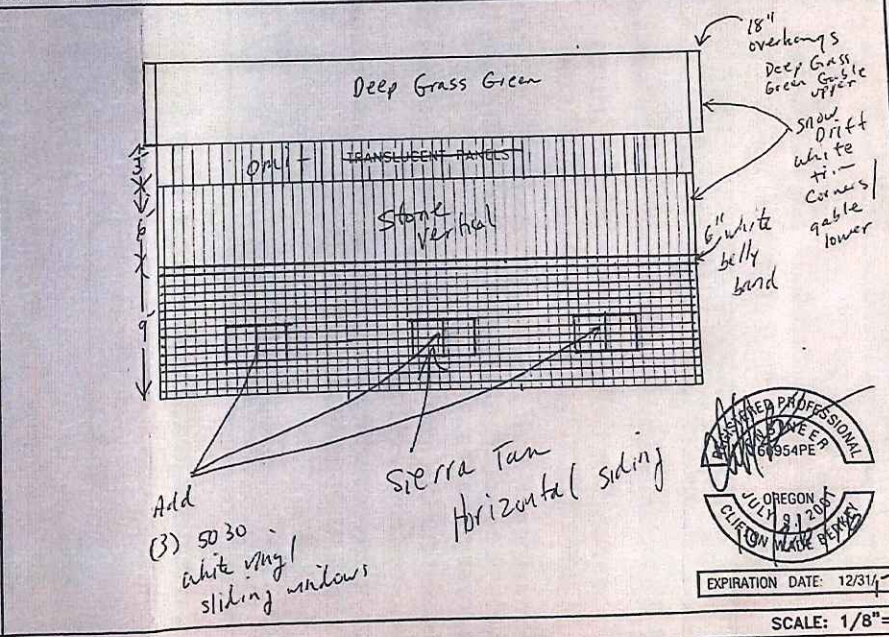 18"
overhangs
Deep Grass
Green Gable
upper
Deep Grass Green
snow
Drift
white
trim
corners/
gable
lower
3'
omit TRANSLUCENT PANELS
6'
Stone
Vertical
6" white
belly
band
9'
Sierra Tan
Horizontal siding
Add
(3) 5030
white vinyl
sliding windows
REGISTERED PROFESSIONAL
ENGINEER
60954PE
OREGON
JULY 2001
CLIFTON WADE
EXPIRATION DATE: 12/31/
SCALE: 1/8"=